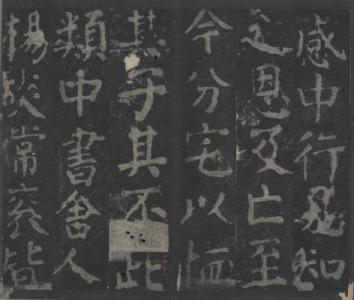 感中行見知
之恩及亡至
今分宅以恤
其子其不
類中書舍人
楊炎常袞皆